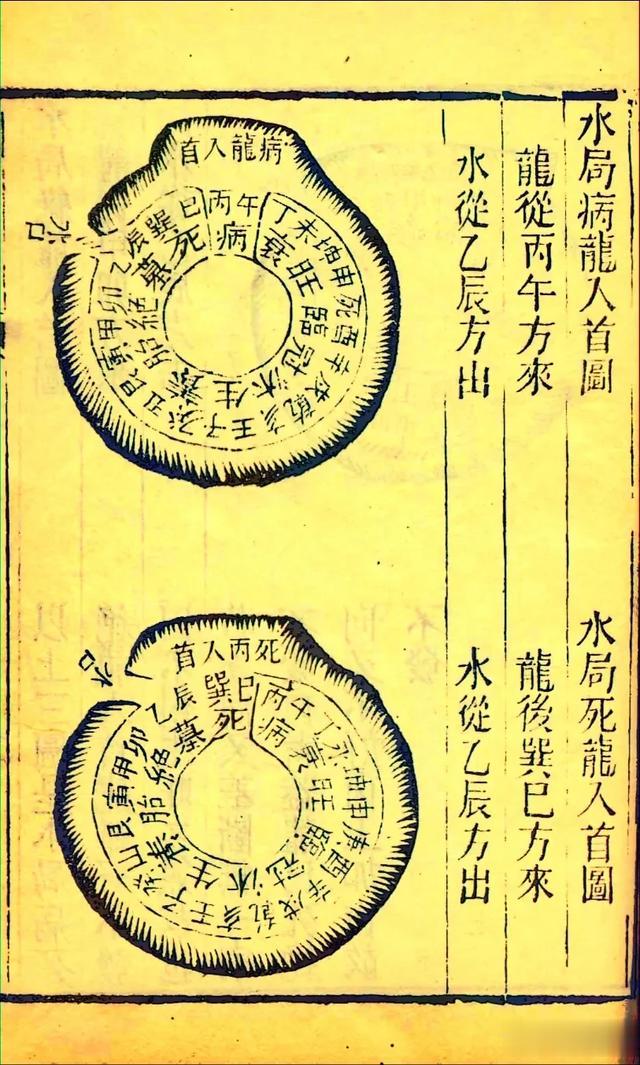 水局病龍入首圖
龍從丙午方來
水從乙辰方出
病龍入首
丙午
丁未坤申酉辛戌乾亥壬子癸丑艮寅甲卯乙辰
巽巳
病衰旺臨冠沐生養胎絕墓死
水口
水局死龍入首圖
龍後巽巳方來
水從乙辰方出
死丙入首
巽巳
丙午丁未坤申庚酉辛戌乾亥壬子癸艮寅甲卯乙辰
死病衰旺臨冠沐生養胎絕墓
水口